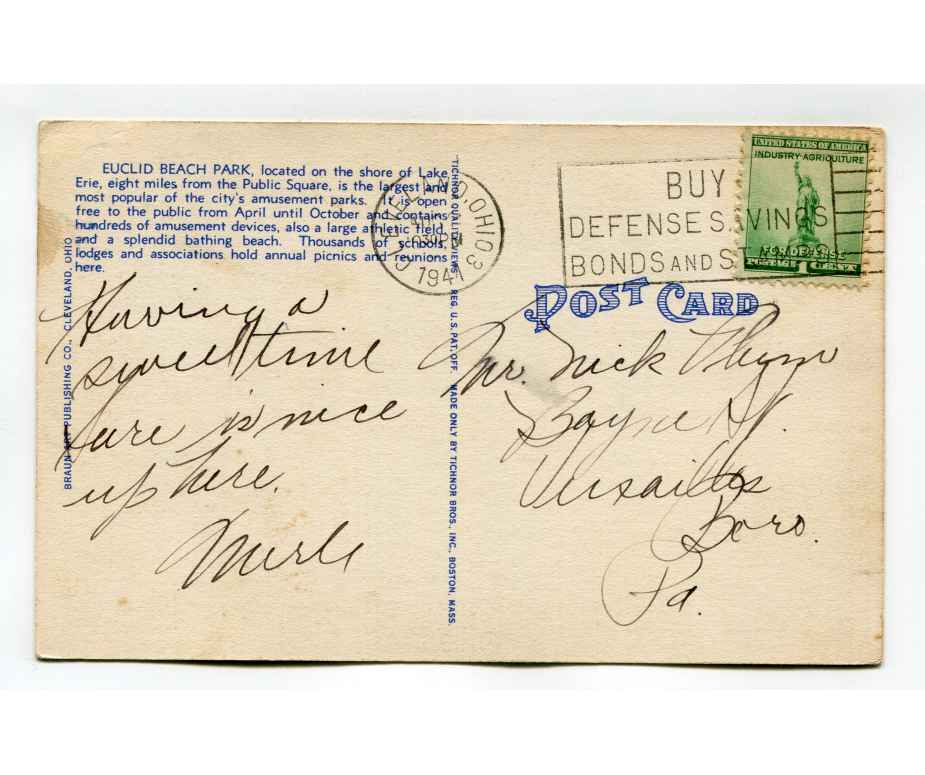 EUCLID BEACH PARK, located on the shore of Lake
Erie, eight miles from the Public Square, is the largest and
most popular of the city's amusement parks. It is open
free to the public from April until October and contains
hundreds of amusement devices, also a large athletic field,
and a splendid bathing beach. Thousands of schools,
lodges and associations hold annual picnics and reunions
here.
BRAUN ART PUBLISHING CO., CLEVELAND, OHIO
Having a
swell time
Sure is nice
up here.
Merle
TICHNOR QUALITY VIEWS REG. U.S. PAT. OFF. MADE ONLY BY TICHNOR BROS., INC., BOSTON, MASS.
CLEVELAND, OHIO 3
PM
1941
BUY
DEFENSE SAVINGS
BONDS AND S
UNITED STATES OF AMERICA
INDUSTRY AGRICULTURE
FOR DEFENSE
1 CENT
POST CARD
Mr. Nick
Bayne St.
Versailles
Boro.
Pa.